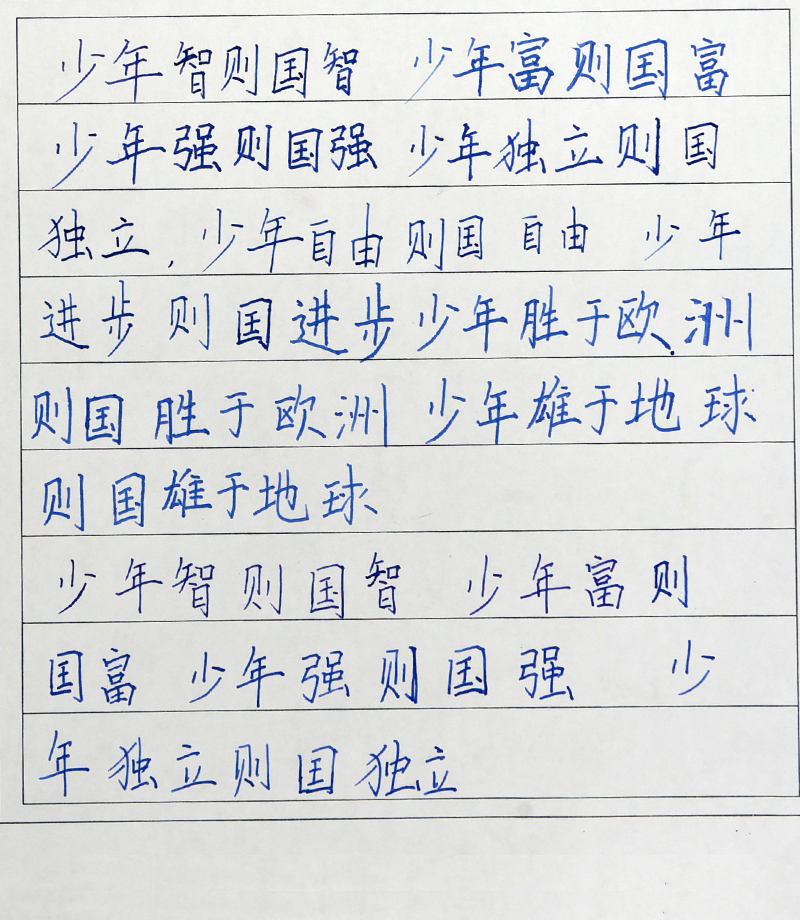 少年智则国智 少年富则国富
少年强则国强 少年独立则国
独立,少年自由则国 自由 少年
进步 则国进步少年胜于欧洲
则国 胜于欧洲 少年雄于地球
则国雄于地球
少年智则国智 少年富则
国富 少年强则国强 少
年独立则国独立